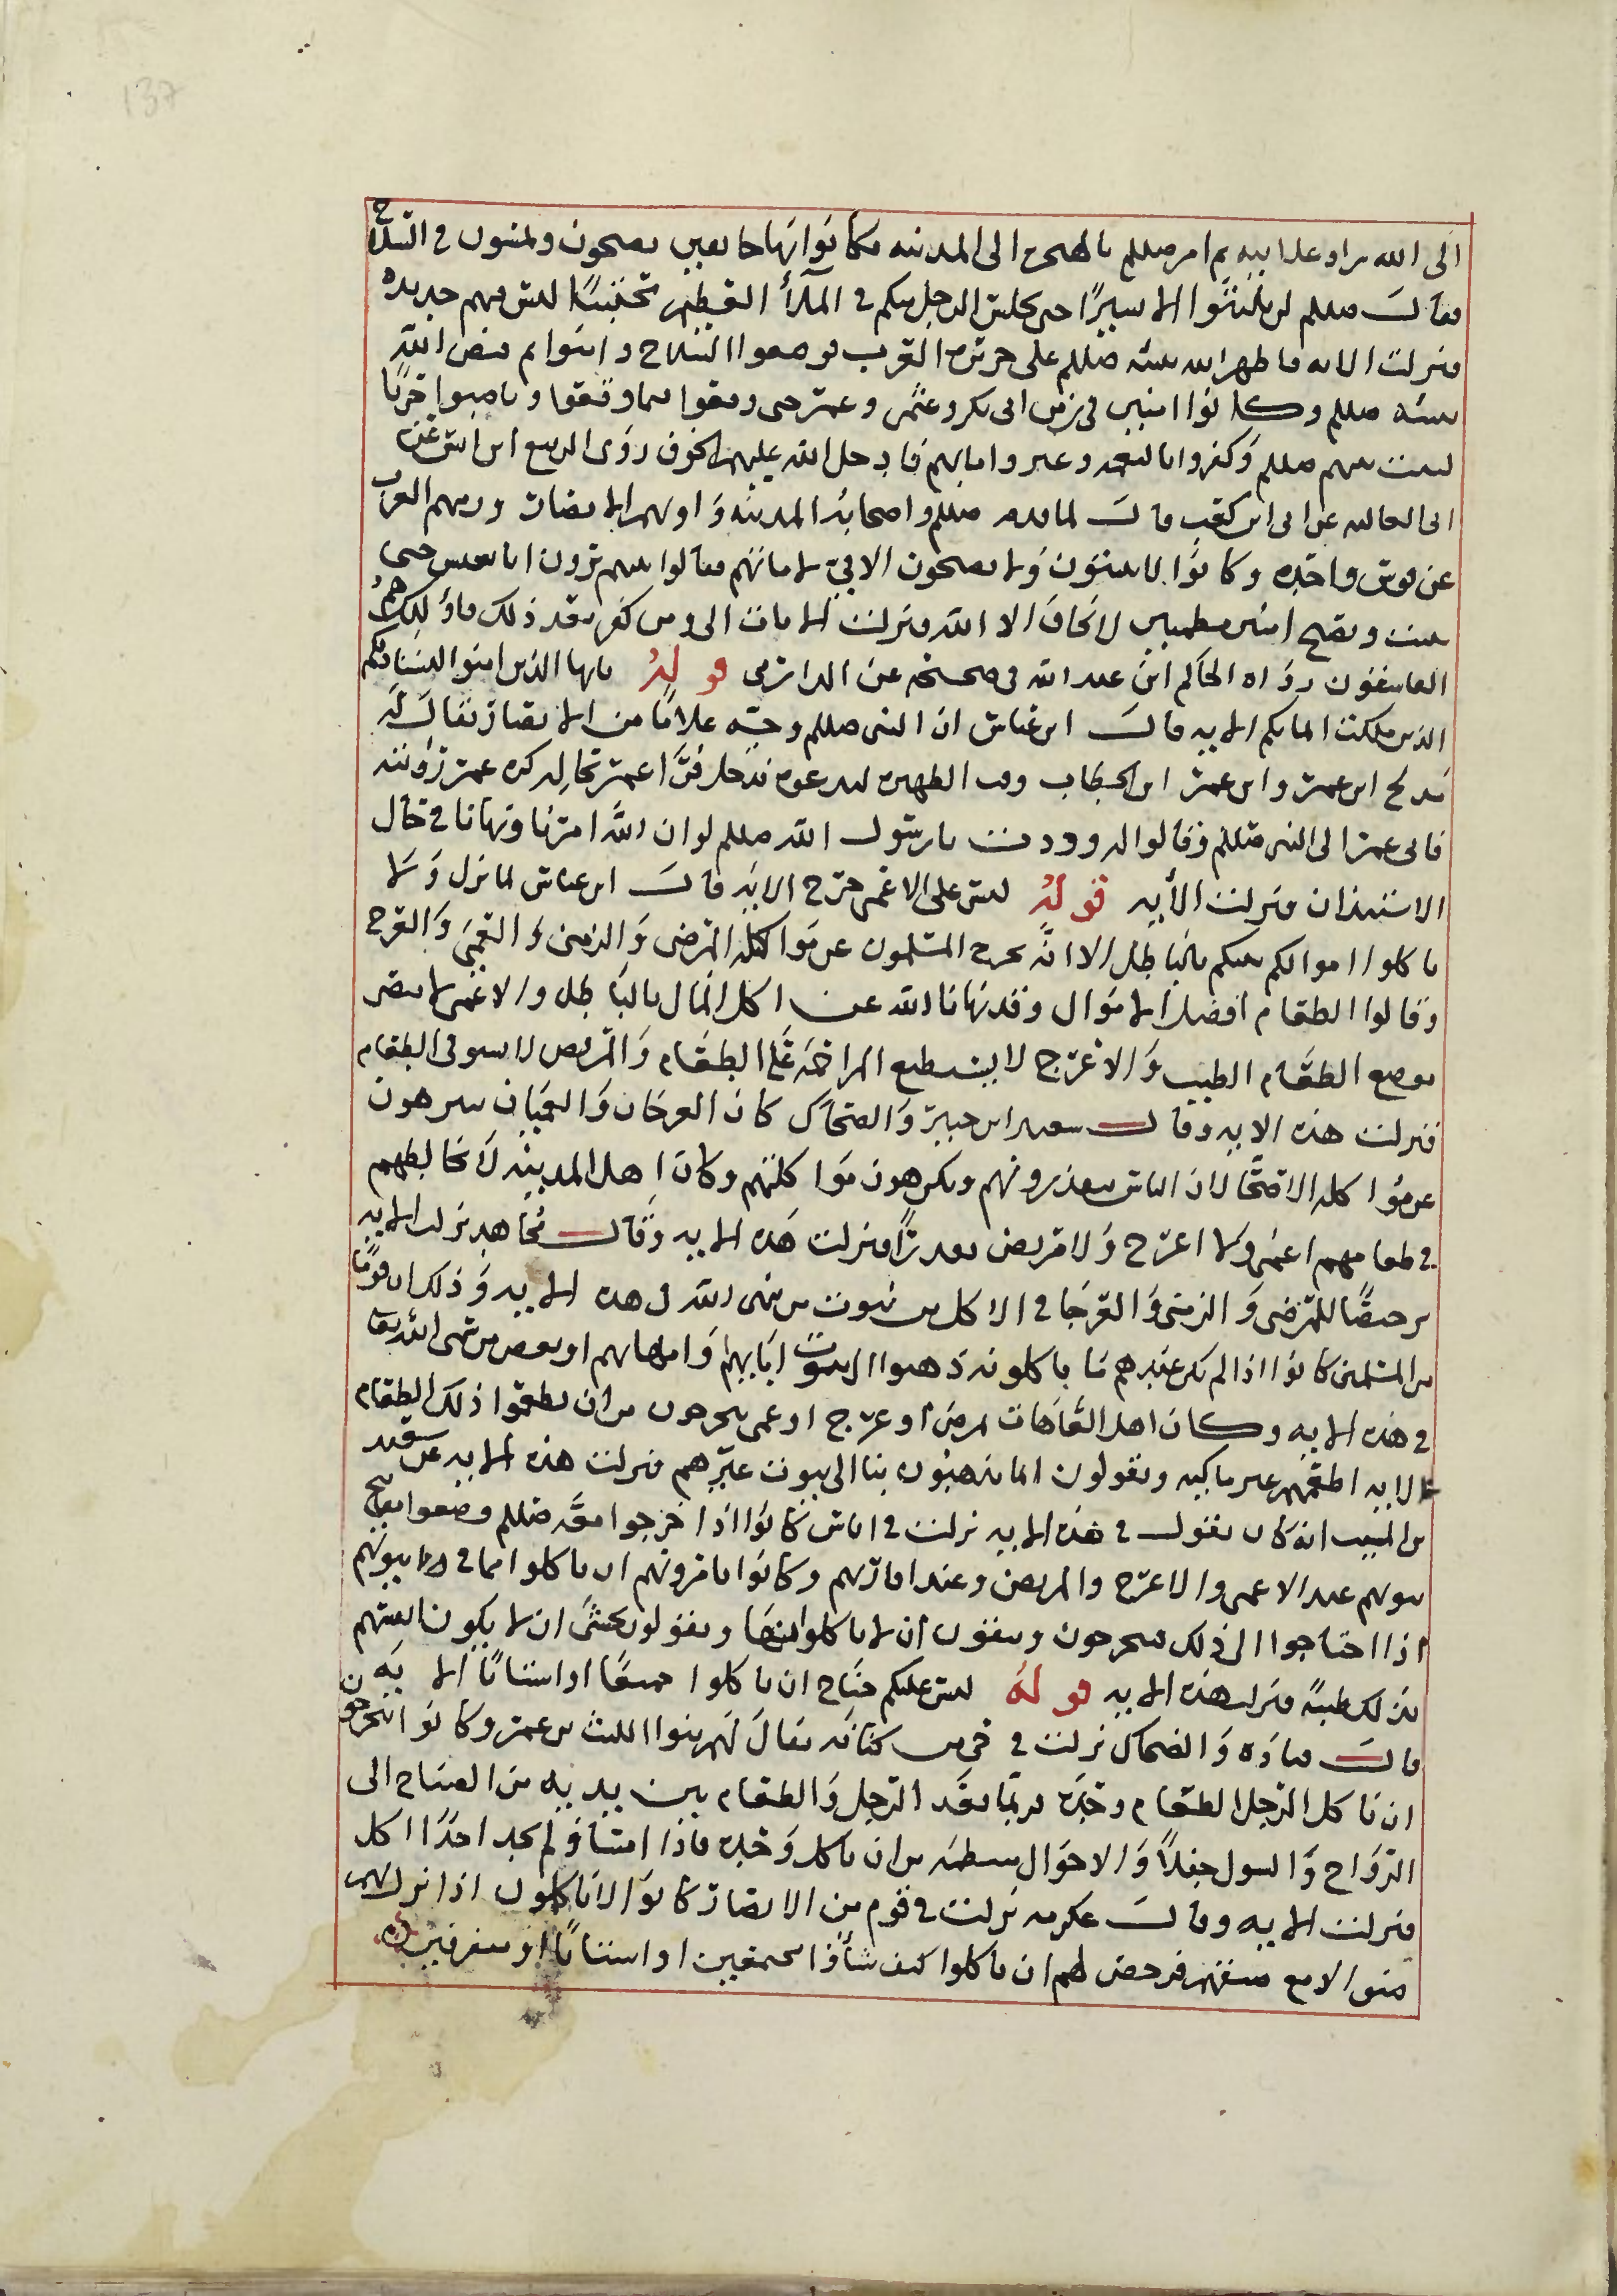 الى الله سرا وعلانيه ثم امر صللم بالهجره الى المدينه فكانوا بها خايفين يصبحون ويمسون في السلاح
فقال صللم لن تلبثوا الا يسيرًا حتى يجلس الرجل منكم في الملأ العظيم محتبيًا ليس فيهم حديده
فنزلت الايه فاظهر الله نبيه صللم على جزيره العرب فوضعوا السلاح وامنوا ثم قبض الله
نبيه صللم وكانوا امنين في زمن ابى بكر وعثمن وعمر حتى وقعوا فيما وقعوا
صللم وكفروا بالنعمه وغيروا ما بهم فادخل الله عليهم الخوف روى الربيع ابن انس عن
ابى العاليه عن ابى ابن كعب قال لما قدم صللم واصحابه المدينه واوتهم الانصار ورمتهم العرب
عن قوس واحده وكانوا لا يبيتون ولا يصبحون الا في لامانهم فقالوا ترون انا نعيش حتى
نبيت ونصبح امنين مطمينين لا نخاف الا الله فنزلت الايات الى ومن كفر بعد ذلك فاولئك هم
الفاسقون رواه الحاكم ابن عبد الله في صحيحه عن الدارمى قوله يايها الذين امنوا ليستاذنكم
الذين ملكت ايمانكم الايه قال ابن عباس ان النبي صللم وجه غلامًا من الانصار يقال له
مدلج ابن عمر وابن عمر ابن الخطاب وقت الظهيره ليدعوه فدخل فرا عمر بحاله كره عمر رؤيته
فاتى عمر الى النبي صللم وقالوا له وددت يا رسول الله صللم لو ان الله امرنا ونهانا في حال
الاستيذان فنزلت الأيه قوله ليس على الاعمى حرج الايه قال ابن عباس لما نزل ولا
تاكلوا اموالكم بينكم بالباطل الا انه تحرج المسلمون عن مواكله المرضى والزمنى والعمى والعرج
وقالوا الطعام افضل الاموال وقد نهانا الله عن اكل المال بالباطل والاعمى لا يبصر
موضع الطعام الطيب والاعرج لا يستطيع المزاحمه على الطعام والمريض لا يستوفي الطعام
فنزلت هذه الايه وقال سعيد ابن جبير والضحاك كان العرجان والعميان يتنزهون
عن مواكله الاصحا لان الناس يتقذرونهم ويكرهون مواكلتهم وكان اهل المدينه لا يخالطهم
في طعامهم اعمى ولا اعرج ولا مريض تقذرًا فنزلت هذه الايه وقال مجاهد نزلت الايه
ترخيصًا للمرضى والزمنى والعرجا في الاكل من بيوت من سمى الله في هذه الايه وذلك ان قومًا
من المسلمين كانوا اذا لم يكن عندهم ما ياكلونه ذهبوا الى بيوت ابايهم وامهاتهم او بعض من سمى الله تعا
في هذه الايه وكان اهل العاهات لمرض او عرج او عمى يتحرجون من ان يطعموا ذلك الطعام
لانه اطعمهم غير مالكيه ويقولون انما يذهبون بنا الى بيوت غيرهم فنزلت هذه الايه عن سعيد
بن المسيب انه كان يقول في هذه الايه نزلت في اناس كانوا اذا خرجوا معه صللم وضعوا مفاتيح
بيوتهم عند الاعمى والاعرج والمريض وعند اقاربهم وكانوا يامرونهم ان ياكلوا مما في بيوتهم
اذا احتاجوا الى ذلك فيتحرجون ويتقون ان لا ياكلوا منها ويقولون نخشى ان لا يكون انفسهم
بذلك طيبة فنزلت هذه الايه قوله ليس عليكم جناح ان تاكلوا جميعًا او اشتاتًا الايه
قال قتاده والضحاك نزلت في حي من كنانه يقال لهم بنوا الليث بن عمر وكانوا يتحرجون
ان ياكل الرجل الطعام وحده فربما يقعد الرجل والطعام بين يديه من الصباح الى
الرواح والشول حفلاً والاحوال منتظمه من ان ياكل وحده فاذا امسا ولم يجد احدًا اكل
فنزلت الايه وقال عكرمه نزلت في قوم من الانصار كانوا لا ياكلون اذا نزل بهم
ضيف الا مع ضيفهم فرخص لهم ان ياكلوا كيف شأوا مجتمعين او اشتاتًا او متفرقين